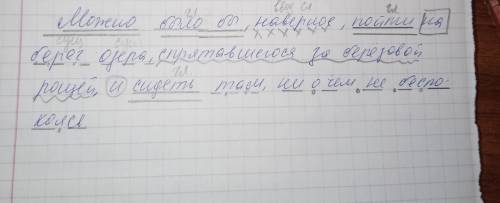 Можно было бы, наверное, пойти на
берег озера, спрятавшегося за березовой
рощей, и сидеть там, ни о чем не беспо-
коясь